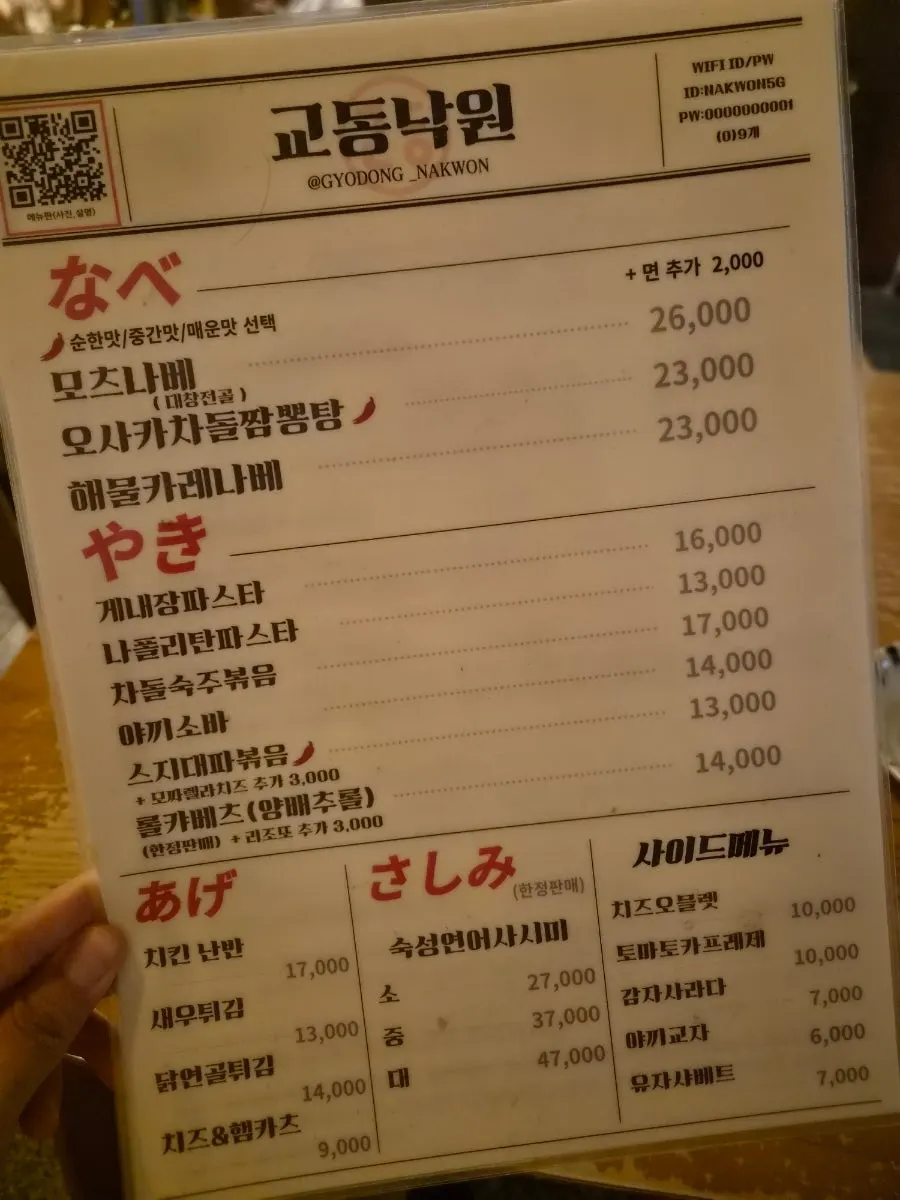 교동낙원
@GYODONG _NAKWON
메뉴판(사진,설명)
WIFI ID/PW
ID:NAKWON5G
PW:0000000001
(0)9개
なべ
+ 면 추가 2,000
순한맛/중간맛/매운맛 선택
모츠나베 26,000
( 대창전골 )
오사카차돌짬뽕탕 23,000
해물카레나베 23,000
やき
게내장파스타 16,000
나폴리탄파스타 13,000
차돌숙주볶음 17,000
야끼소바 14,000
스지대파볶음 13,000
+ 모짜렐라치즈 추가 3,000
롤캬베츠(양배추롤) 14,000
(한정판매) + 리조또 추가 3,000
あげ
치킨 난반
17,000
새우튀김
13,000
닭연골튀김
14,000
치즈&햄카츠
9,000
さしみ (한정판매)
숙성연어사시미
소 27,000
중 37,000
대 47,000
사이드메뉴
치즈오믈렛 10,000
토마토카프레제 10,000
감자사라다 7,000
야끼교자 6,000
유자샤베트 7,000